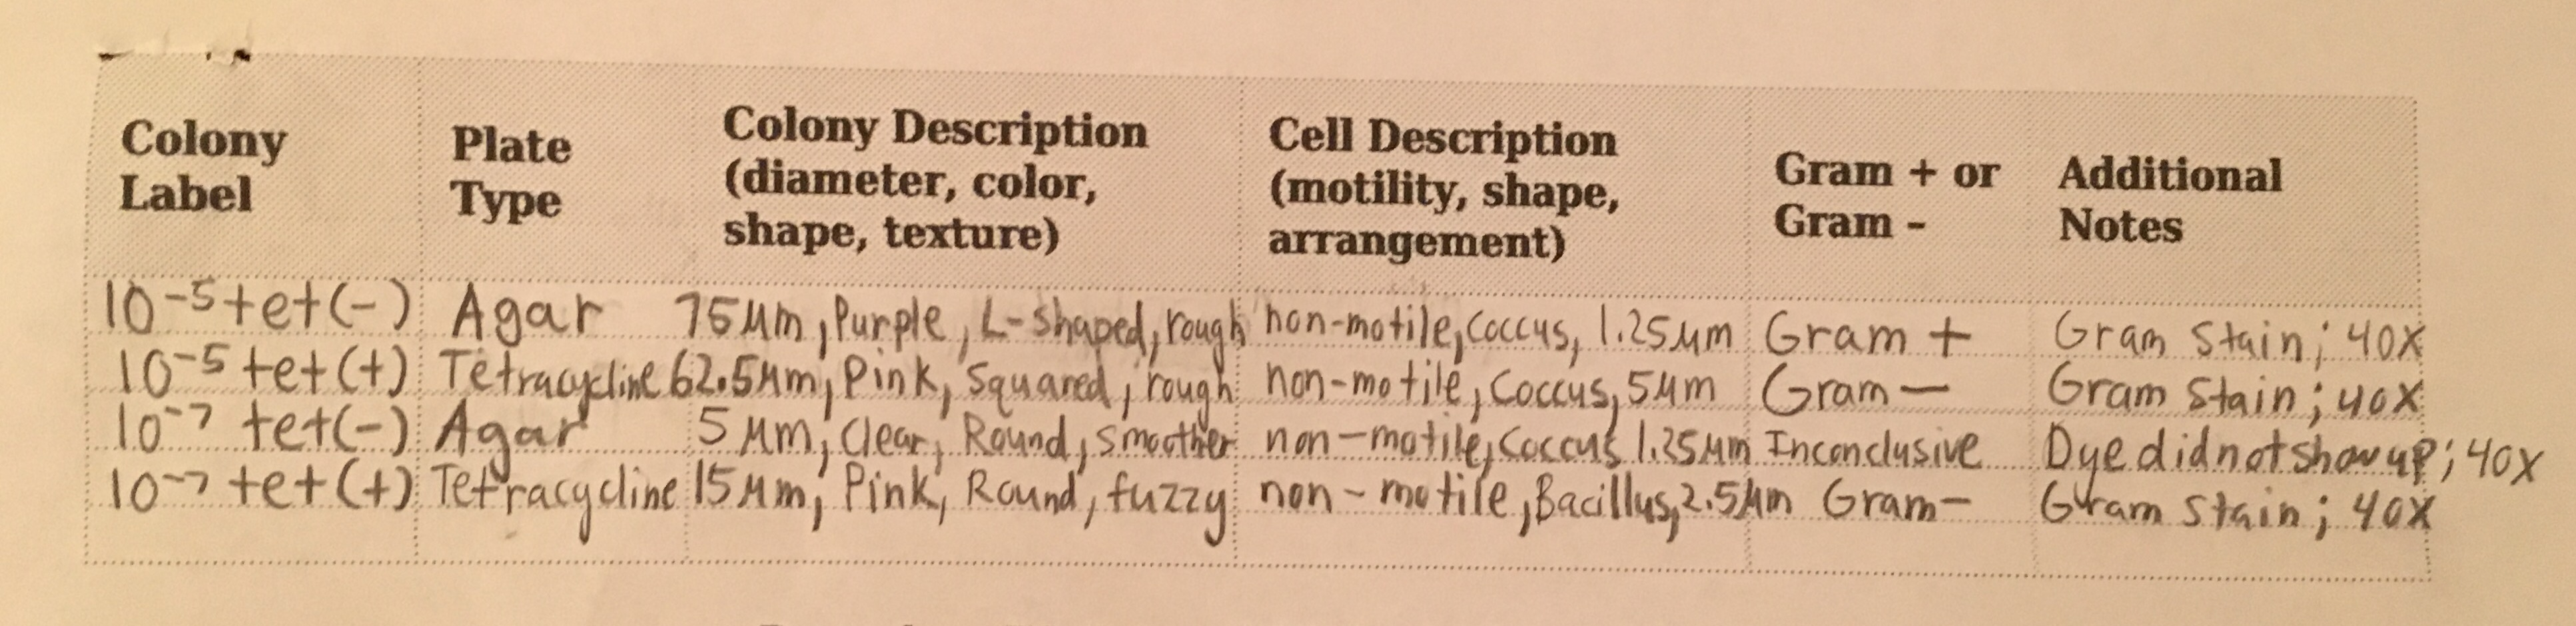 Colony Label
Plate Type
Colony Description (diameter, color, shape, texture)
Cell Description (motility, shape, arrangement)
Gram + or Gram -
Additional Notes
10⁻⁵ tet(-) Agar 75µm, Purple, L-shaped, rough non-motile, Coccus, 1.25µm Gram + Gram Stain; 40X
10⁻⁵ tet(+) Tetracycline 62.5µm, Pink, Squared, rough non-motile, Coccus, 5µm Gram - Gram Stain; 40X
10⁻⁷ tet(-) Agar 5µm, Clear, Round, smoother non-motile, Coccus 1.25µm Inconclusive Dye did not show up; 40X
10⁻⁷ tet(+) Tetracycline 15µm, Pink, Round, fuzzy non-motile, Bacillus, 2.5µm Gram- Gram Stain; 40X